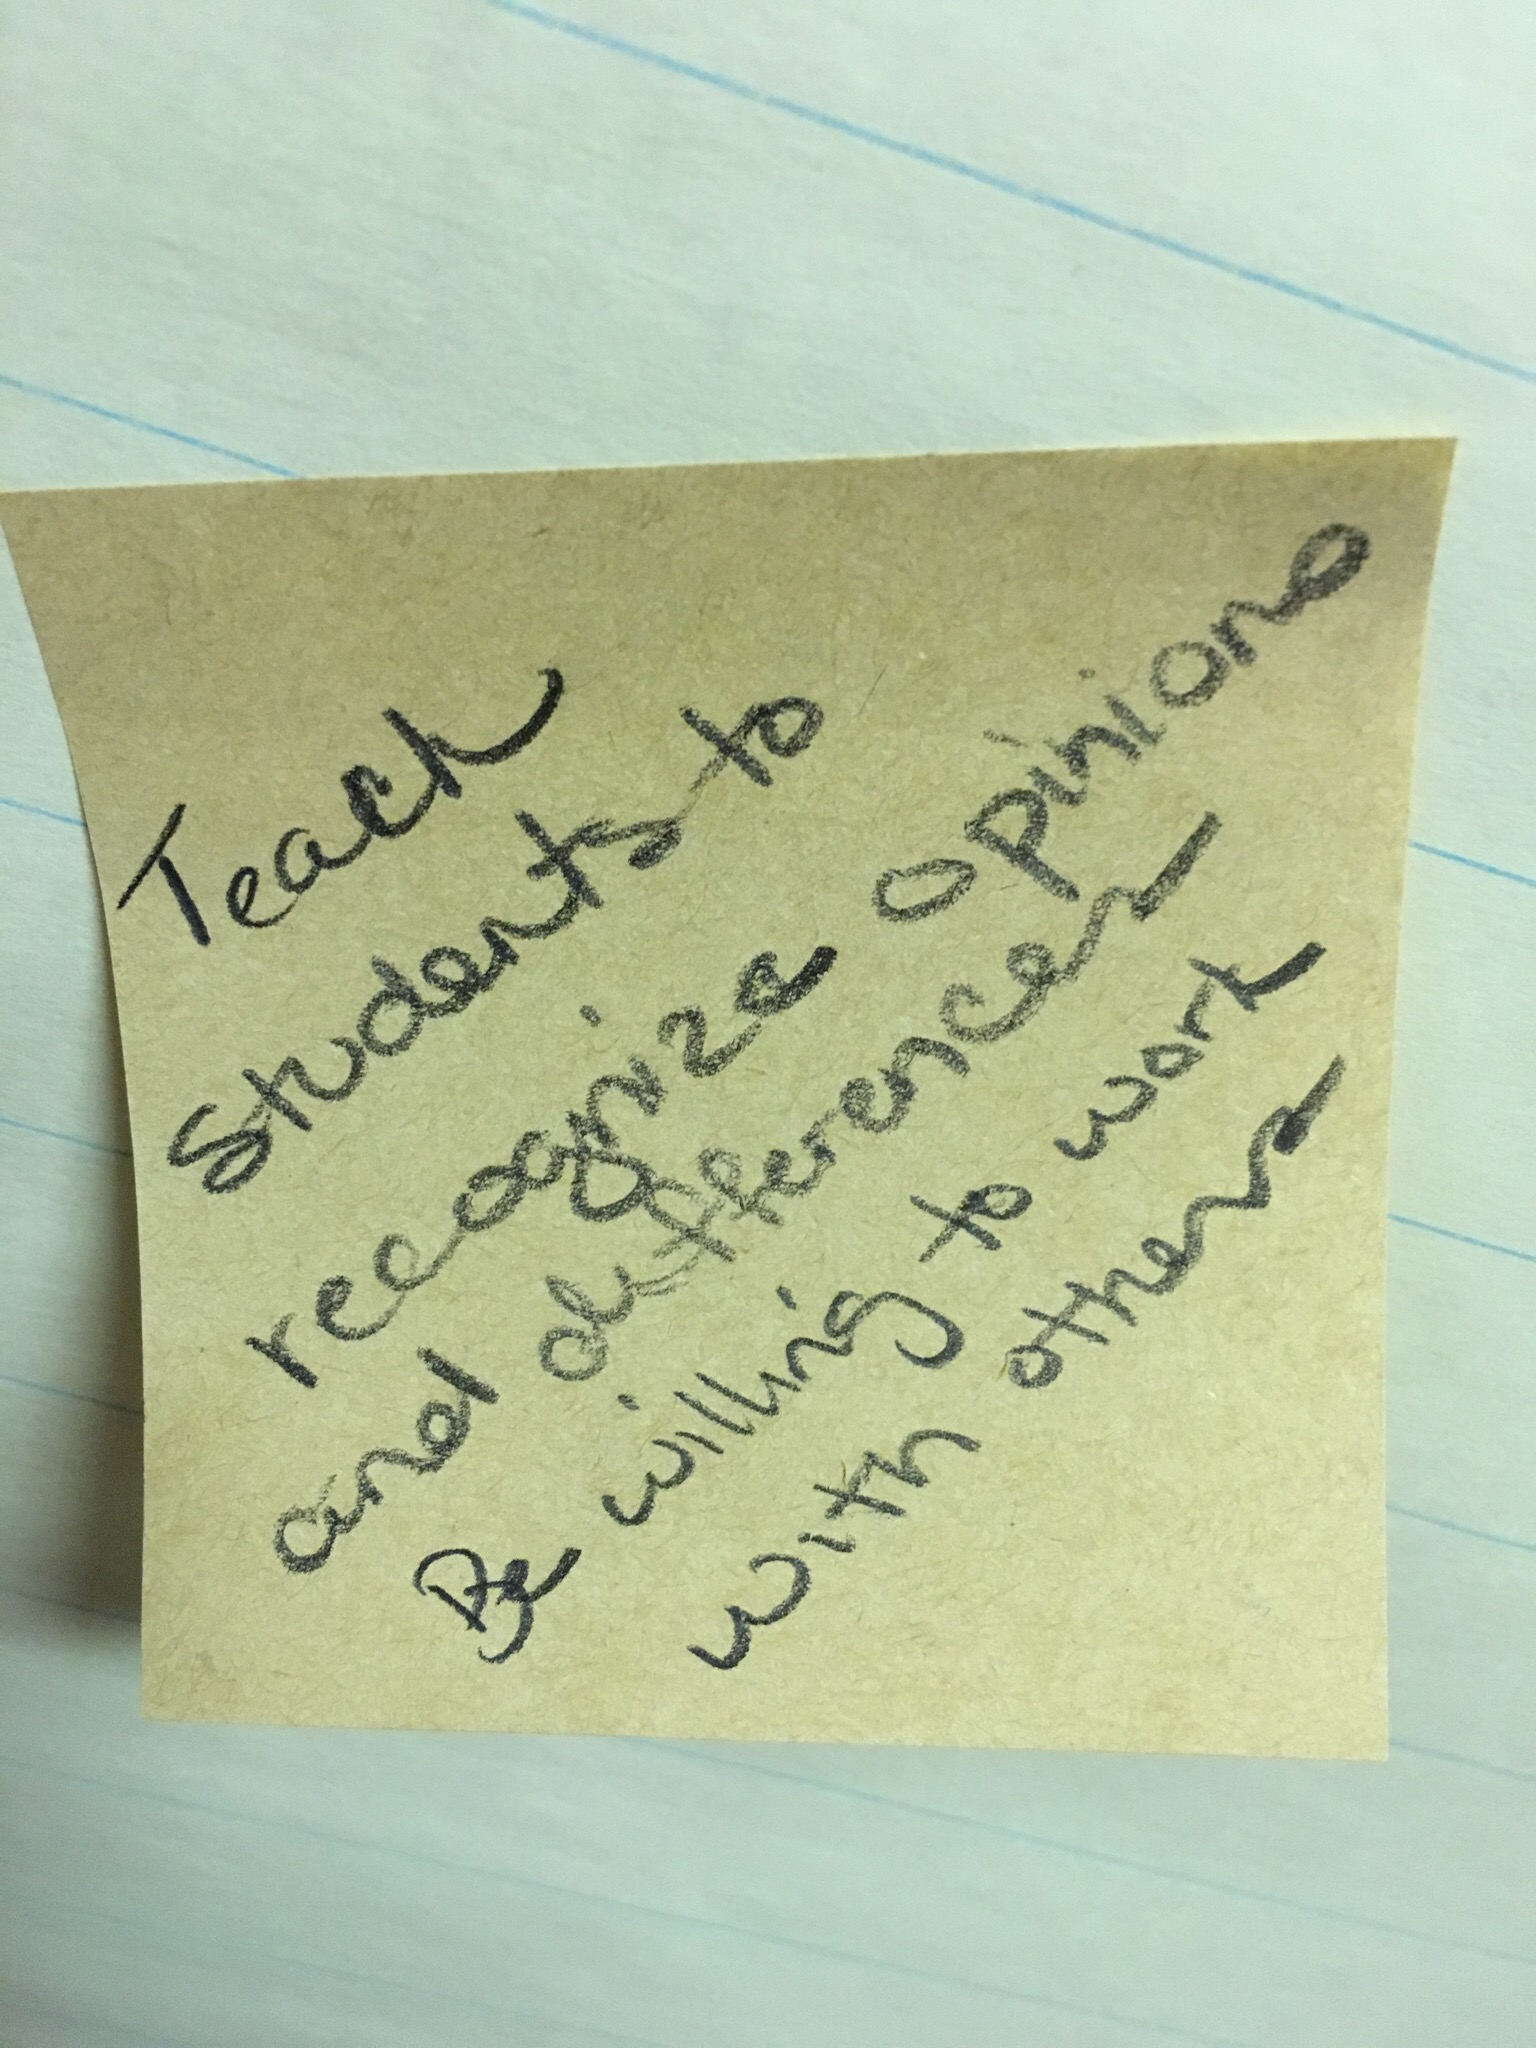 Teach
students to
recognize opinions
and differences
Be willing to work
with others